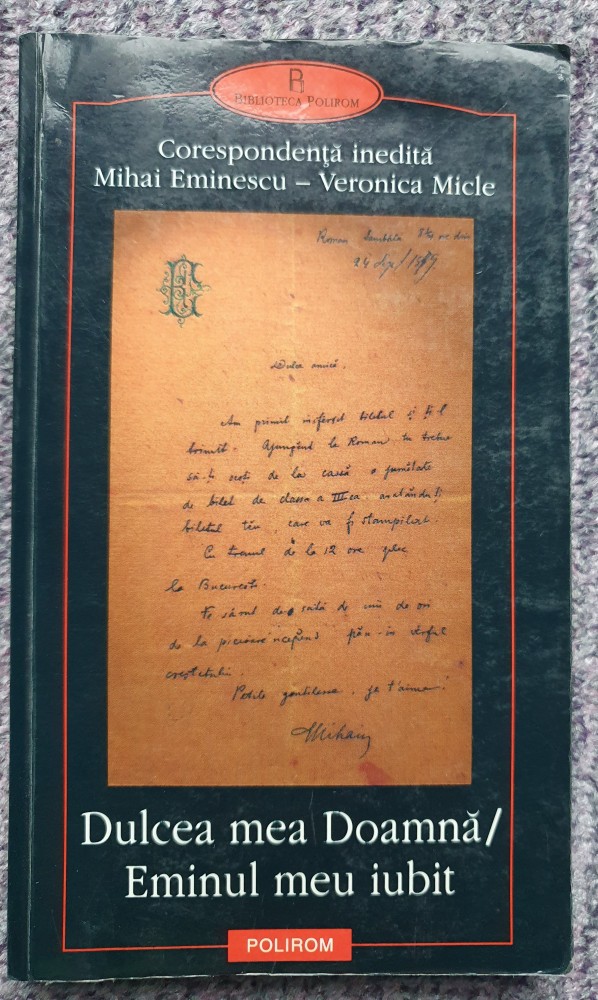 BIBLIOTECA POLIROM
Corespondenţă inedită
Mihai Eminescu – Veronica Micle
Roman Sambătă
24 Sept 1879
Dulce amică,
Am primit însfârșit biletul și ți-l
trimit. Ajungênd la Roman tu trebue
să-ți scoți de la cassă o jumătate
de bilet de classa a III-ea arătându-ți
biletul tău, care va fi stampilat.
Cu trenul de la 12 ore plec
la București.
Te sărut de o sută de mii de ori
de la picioare începênd pân-în vârful
creștetului.
Petite gentilesse, je t'aime!
Mihaiu
Dulcea mea Doamnă/
Eminul meu iubit
POLIROM